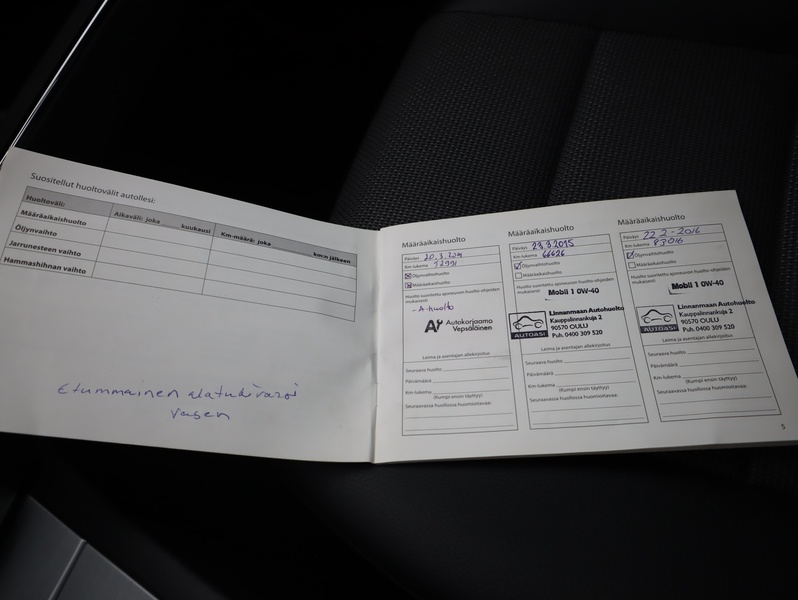 Suositellut huoltovälit autollesi:
Huoltoväli: Aikaväli: joka kuukausi Km-määrä: joka km:n jälkeen
Määräaikaishuolto
Öljynvaihto
Jarrunesteen vaihto
Hammashihnan vaihto
Etummainen alatukivarsi
Vasen
Määräaikaishuolto
Päiväys 20.3.
Km-lukema
Öljynvaihtohuolto
Määräaikaishuolto
Huolto suoritettu ajoneuvon huolto-ohjeiden
mukaisesti
-A-huolto
Autokorjaamo
Vepsäläinen
Leima ja asentajan allekirjoitus
Seuraava huolto
Päivämäärä
Km-lukema
(Kumpi ensin täyttyy)
Seuraavassa huollossa huomioitavaa:
Määräaikaishuolto
Päiväys 23.3.2015
Km-lukema 66626
Öljynvaihtohuolto
Määräaikaishuolto
Huolto suoritettu ajoneuvon huolto-ohjeiden
mukaisesti
Mobil 1 0W-40
AUTOASI
Linnanmaan Autohuolto
Kauppalinnankuja 2
90570 OULU
Puh. 0400 309 520
Leima ja asentajan allekirjoitus
Seuraava huolto
Päivämäärä
Km-lukema
(Kumpi ensin täyttyy)
Seuraavassa huollossa huomioitavaa:
Määräaikaishuolto
Päiväys 22.2-2016
Km-lukema 83016
Öljynvaihtohuolto
Määräaikaishuolto
Huolto suoritettu ajoneuvon huolto-ohjeiden
mukaisesti
Mobil 1 0W-40
AUTOASI
Linnanmaan Autohuolto
Kauppalinnankuja 2
90570 OULU
Puh. 0400 309 520
Leima ja asentajan allekirjoitus
Seuraava huolto
Päivämäärä
Km-lukema
(Kumpi ensin täyttyy)
Seuraavassa huollossa huomioitavaa:
5